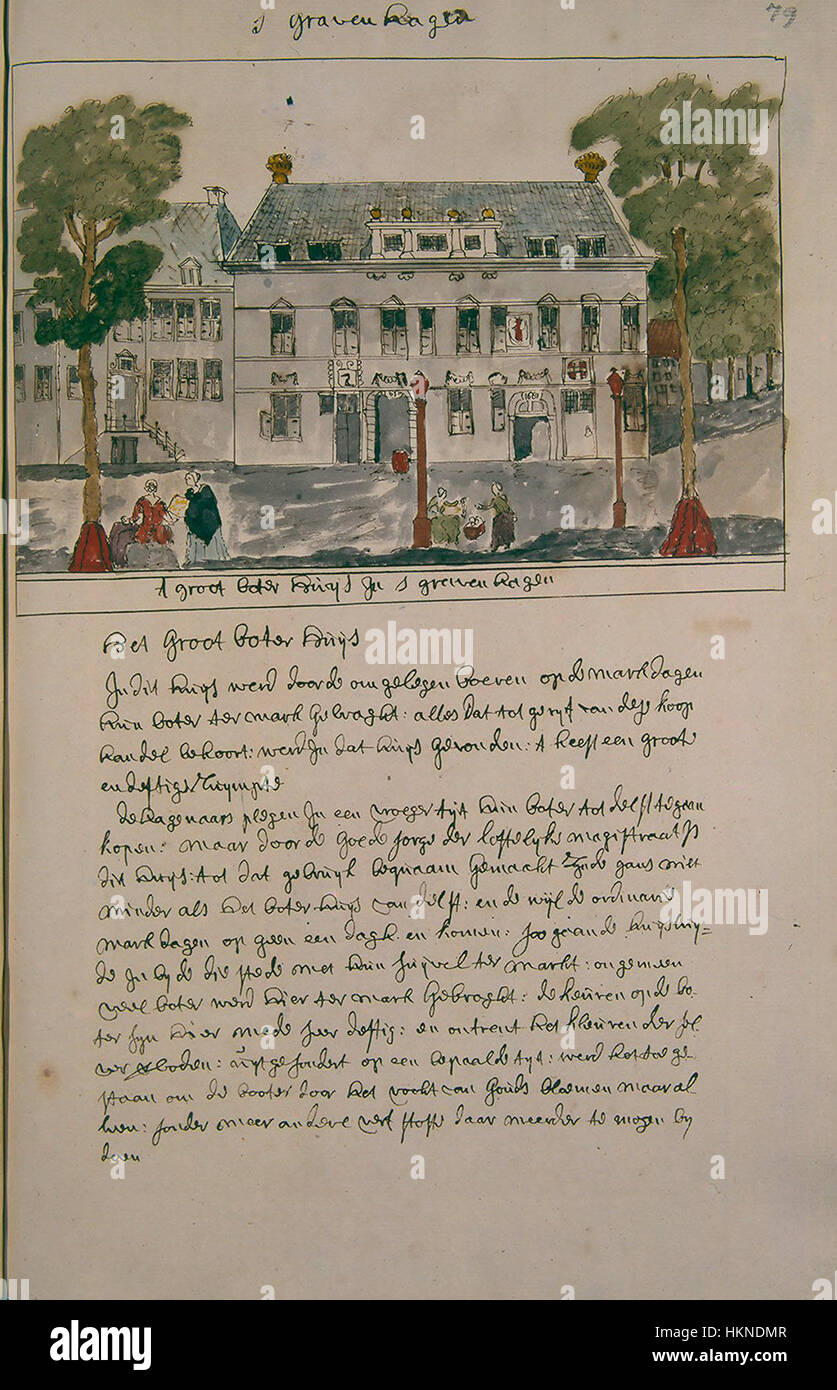 s gravenhagen
79
1681
't groot boter huijs In s gravenhagen
Het Groot boter huijs
In dit huijs werd door de omgelegen boeren op de markdagen
hun boter ter mark Gebraght: alles dat tot gerijf van dese koop
handel behoort: werd In dat huijs gevonden: t heeft een groote
en deftige ruympte
de hagenaars plegen In een vroeger tijt hun boter tot delft te gaan
kopen: maar door de goede sorge der loffelijke magistraat Is
dit huijs: tot dat gebruijk bequaam Gemaakt zijnde gans niet
minder als het boter huijs van delft: en de wijl de ordinaris
mark dagen op geen een dagh en komen: soo gaan de huijsluy=
de In by de die stede met hun suijvel ter markt: ongemeen
veel boter werd hier ter mark Gebraght: de keuren op de bo
ter sijn hier mede seer deftig: en ontrent het kleuren der sel
ver verboden: uijtgesondert op een bepaalde tijt: werd het toege
staan om de booter door het vocht van Gouds bloemen maar al
leen: sonder meer andere verf stoffe daar meerder te mogen by
doen
alamy
Image ID: HKNDMR
www.alamy.com